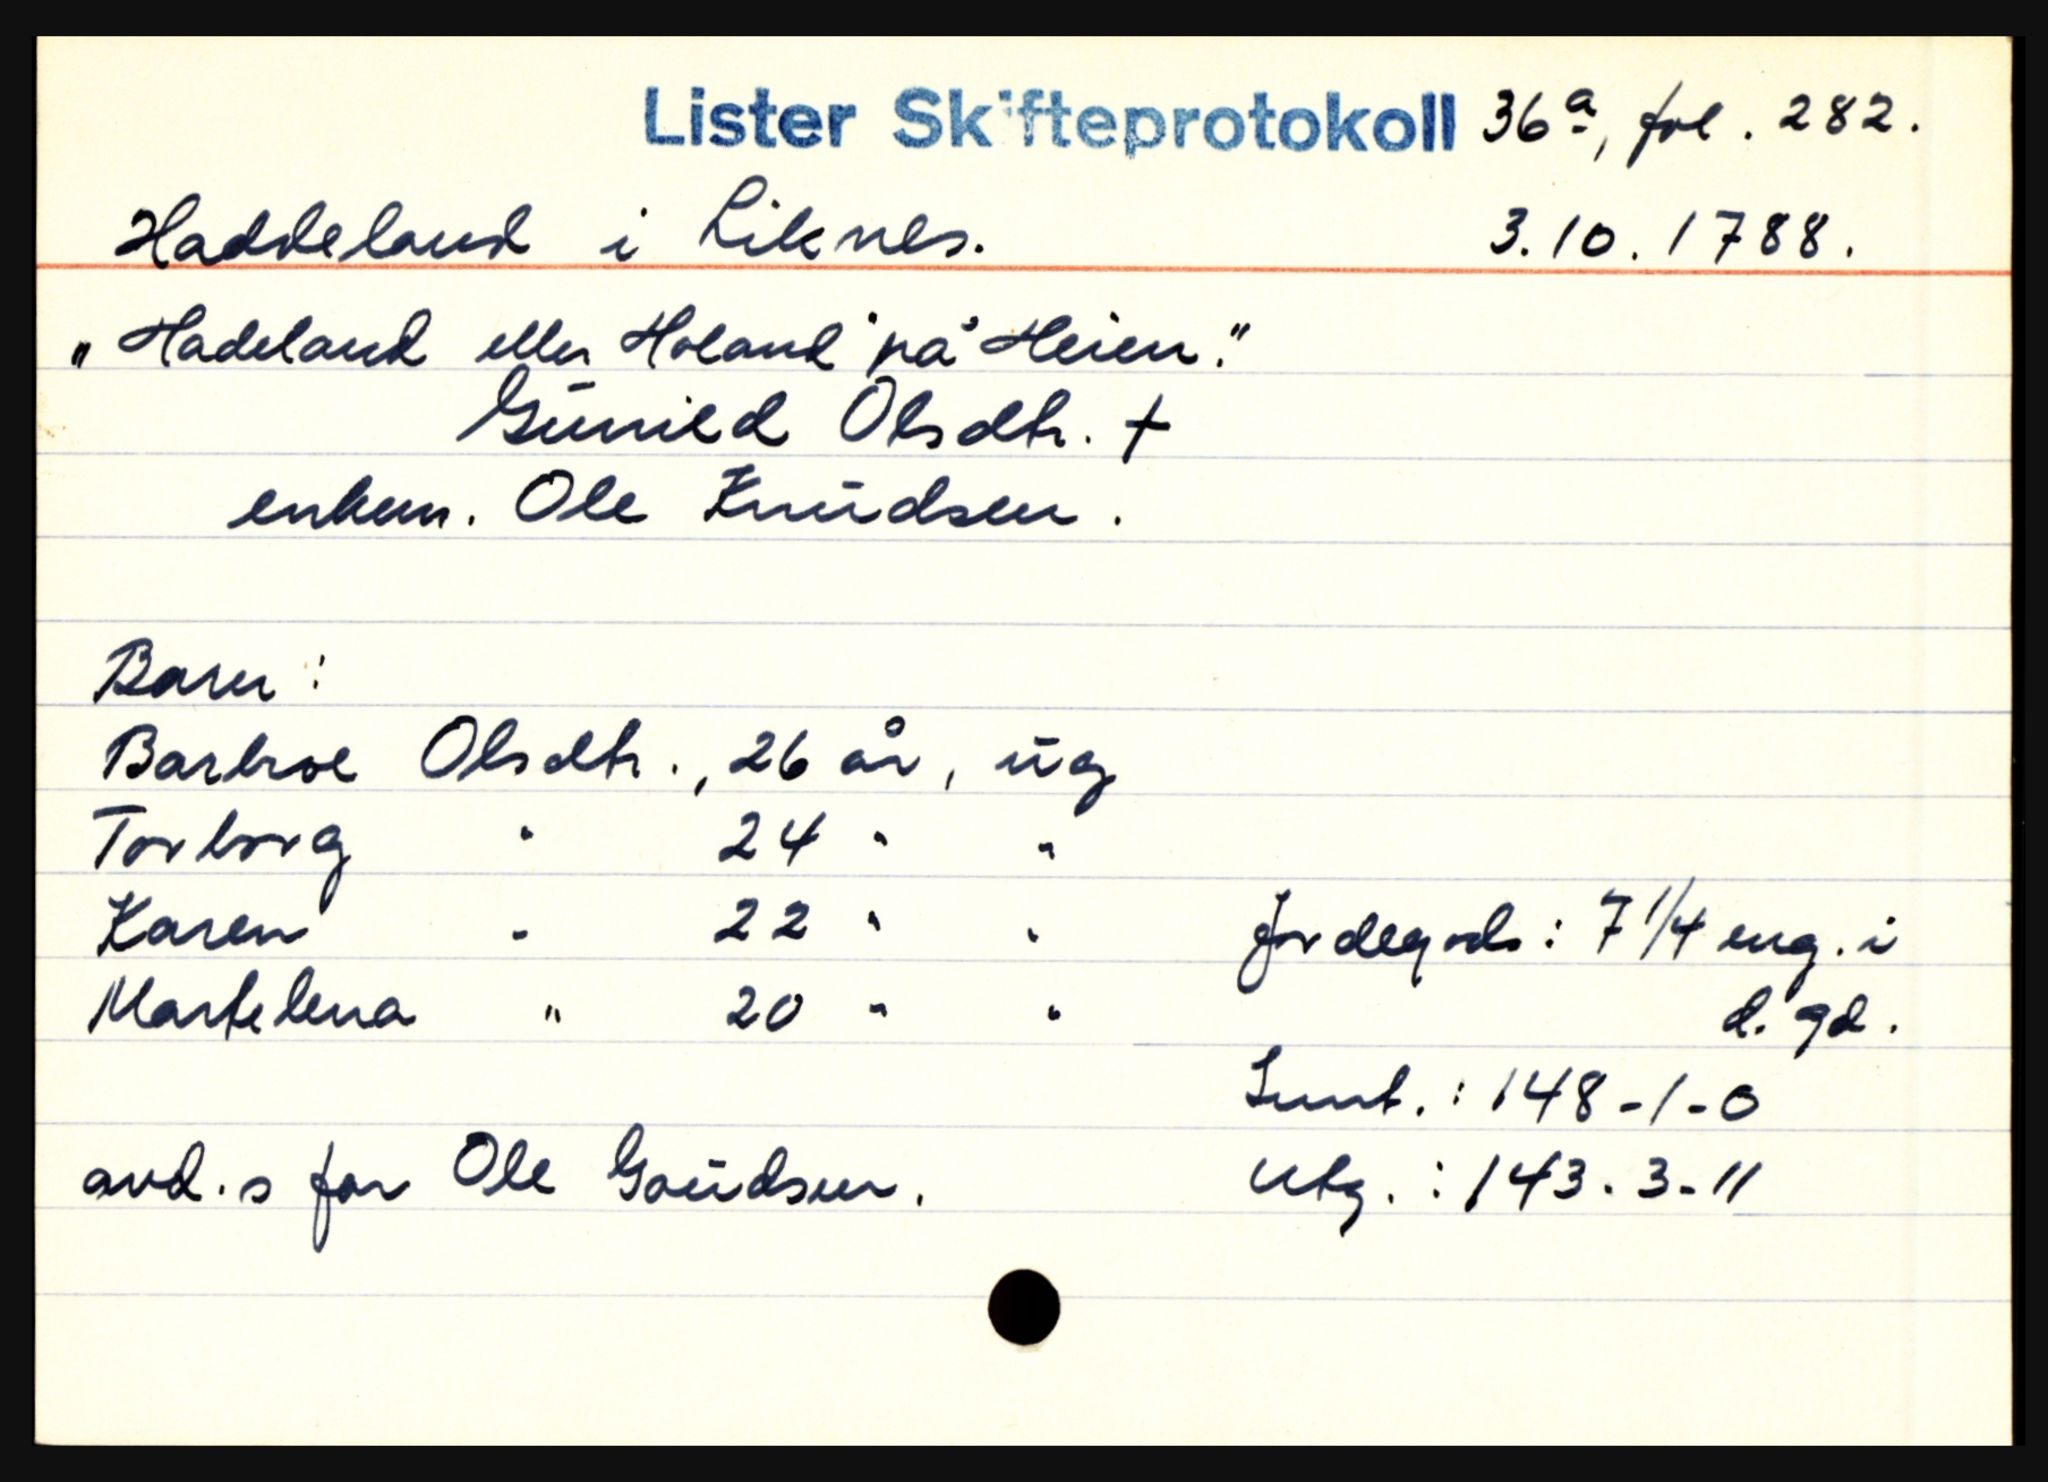 Lister Skifteprotokoll 36a, fol. 282.
Haddeland i Liknes. 3.10.1788.
"Hadeland eller Holand på Heien."
Gunild Olsdtr. †
enkem. Ole Knudsen.
Barn:
Barbroe Olsdtr., 26 år, ug
Torborg " 24 " "
Karen " 22 " "
Jordegods: 7 1/4 eng. i
Martelena " 20 " "
d. gd.
Innt.: 148-1-0
avd.s far Ole Goudsen.
Utg.: 143-3-11